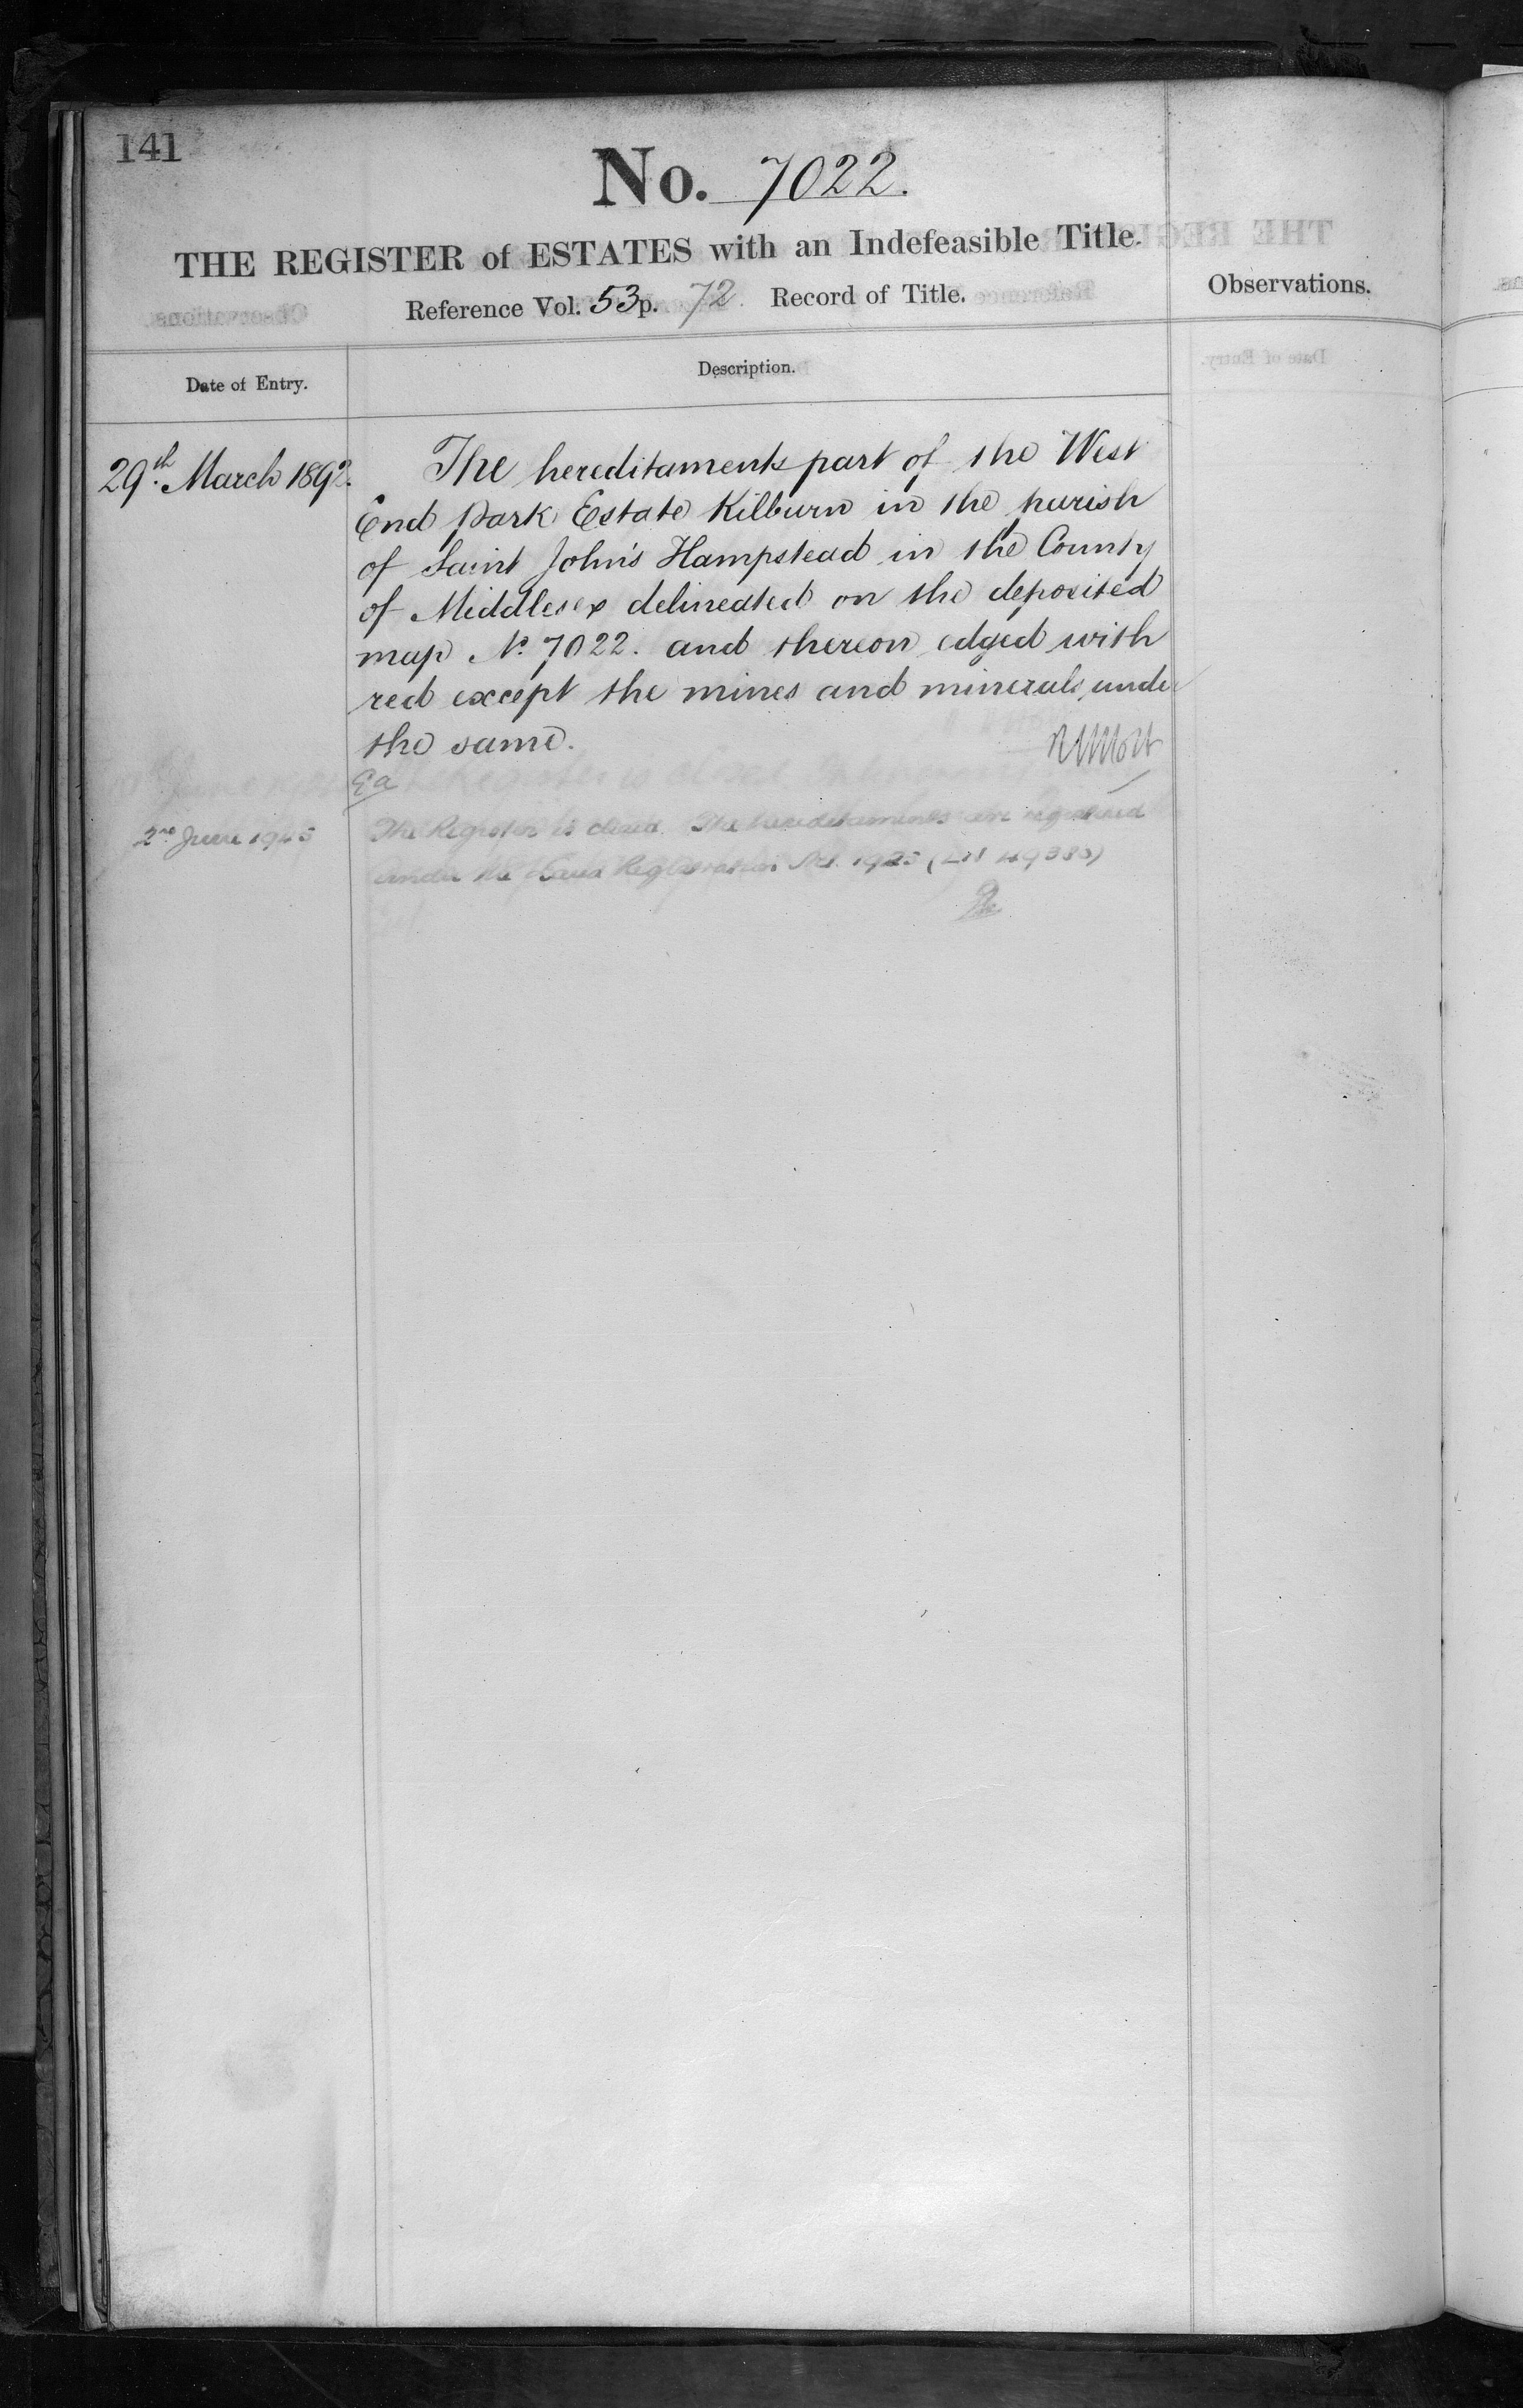 141
No. 7022.
THE REGISTER of ESTATES with an Indefeasible Title.
Reference Vol. 53 p. 72. Record of Title.
Observations.
Date of Entry.
Description.
29th March 1892.
The hereditaments part of the West
End Park Estate Kilburn in the parish
of Saint John's Hampstead in the County
of Middlesex delineated on the deposited
map No. 7022. and thereon edged with
red except the mines and minerals under
the same.
Ea
2nd June 1945
The Register is closed. The hereditaments are registered
under the Land Registration Act. 1925 (LN 49380)